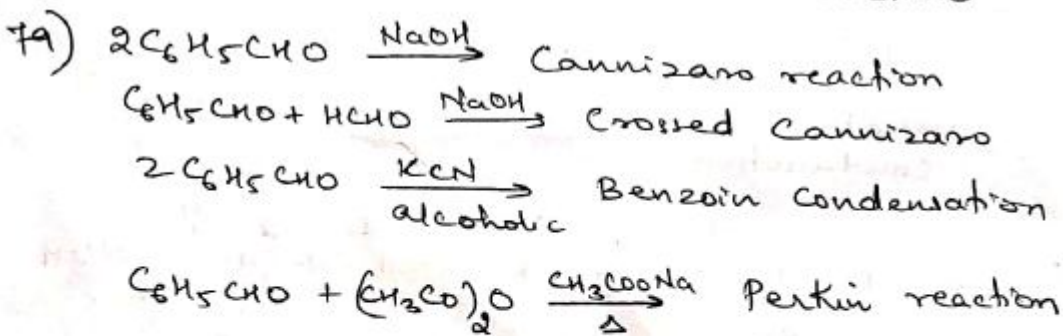 79) 2C₆H₅CHO —NaOH→ Cannizaro reaction
C₆H₅CHO + HCHO —NaOH→ Crossed Cannizaro
2C₆H₅CHO —KCN alcoholic→ Benzoin condensation
C₆H₅CHO + (CH₃CO)₂O —CH₃COONa Δ→ Perkin reaction